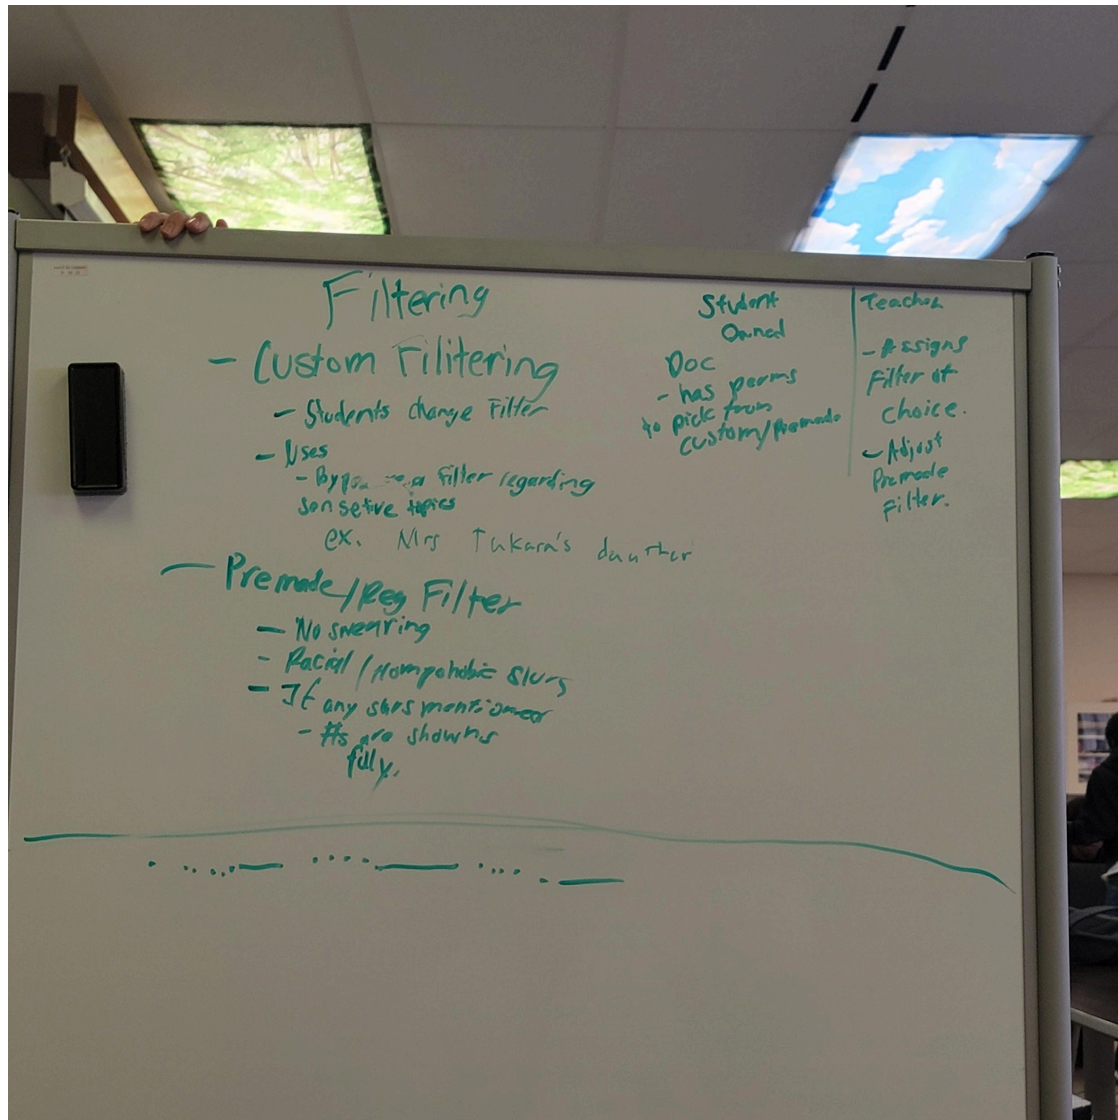 Filtering
- Custom Filitering
- Students change Filter
- Uses
- Filter regarding
sensetive topics
ex. Mrs Tukara's
- Premade/Reg Filter
- No swearing
- Racial/Hompohobic Slurs
- If any slurs mentioned
- #s are shown
fully.
Student
Owned
Doc
- has perms
to pick from
custom/premade
Teacher
- Assigns
Filter of
choice.
- Adjust
Premade
Filter.